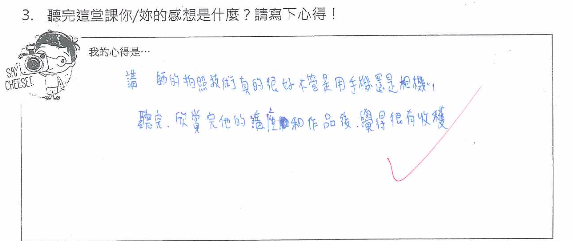 3. 聽完這堂課你/妳的感想是什麼？請寫下心得！
我的心得是…
SAY CHEESE!
講 師的拍照技術真的很好不管是用手機還是相機,
聽完.欣賞完他的講座和作品後.覺得很有收穫